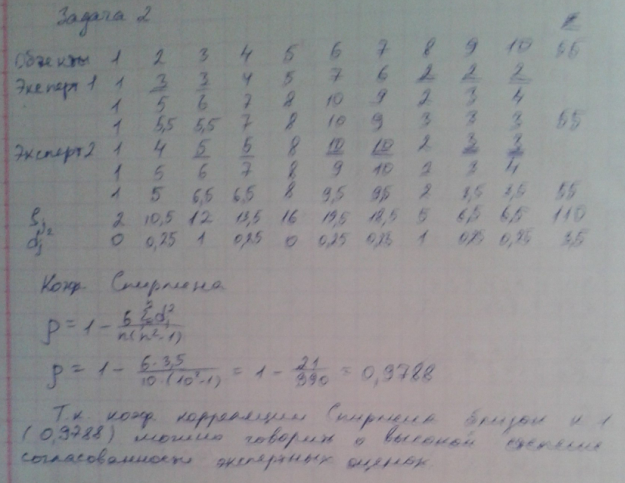 Задача 2 Σ
Объекты 1 2 3 4 5 6 7 8 9 10 55
Эксперт 1 1 3 3 4 5 7 6 2 2 2
1 5 6 7 8 10 9 2 3 4
1 5,5 5,5 7 8 10 9 3 3 3 55
Эксперт 2 1 4 5 5 8 10 10 2 3 3
1 5 6 7 8 9 10 2 3 4
1 5 6,5 6,5 8 9,5 9,5 2 3,5 3,5 55
2 10,5 12 13,5 16 19,5 18,5 5 6,5 6,5 110
0 0,25 1 0,25 0 0,25 0,25 1 0,25 0,25 3,5
Коэф. Спирмена
ρ = 1 - 6 Σ d² / n(n²-1)
ρ = 1 - 6·3,5 / 10·(10²-1) = 1 - 21/990 = 0,9788
Т.к. коэф. корреляции Спирмена близок к 1
(0,9788) можно говорить о высокой степени
согласованности экспертных оценок